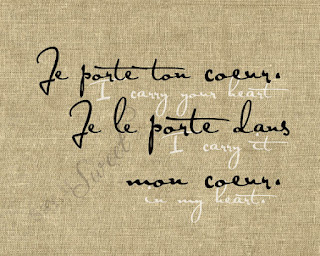 Je porte ton coeur.
I carry your heart
Je le porte dans
I carry it
mon coeur.
in my heart.
Sweet